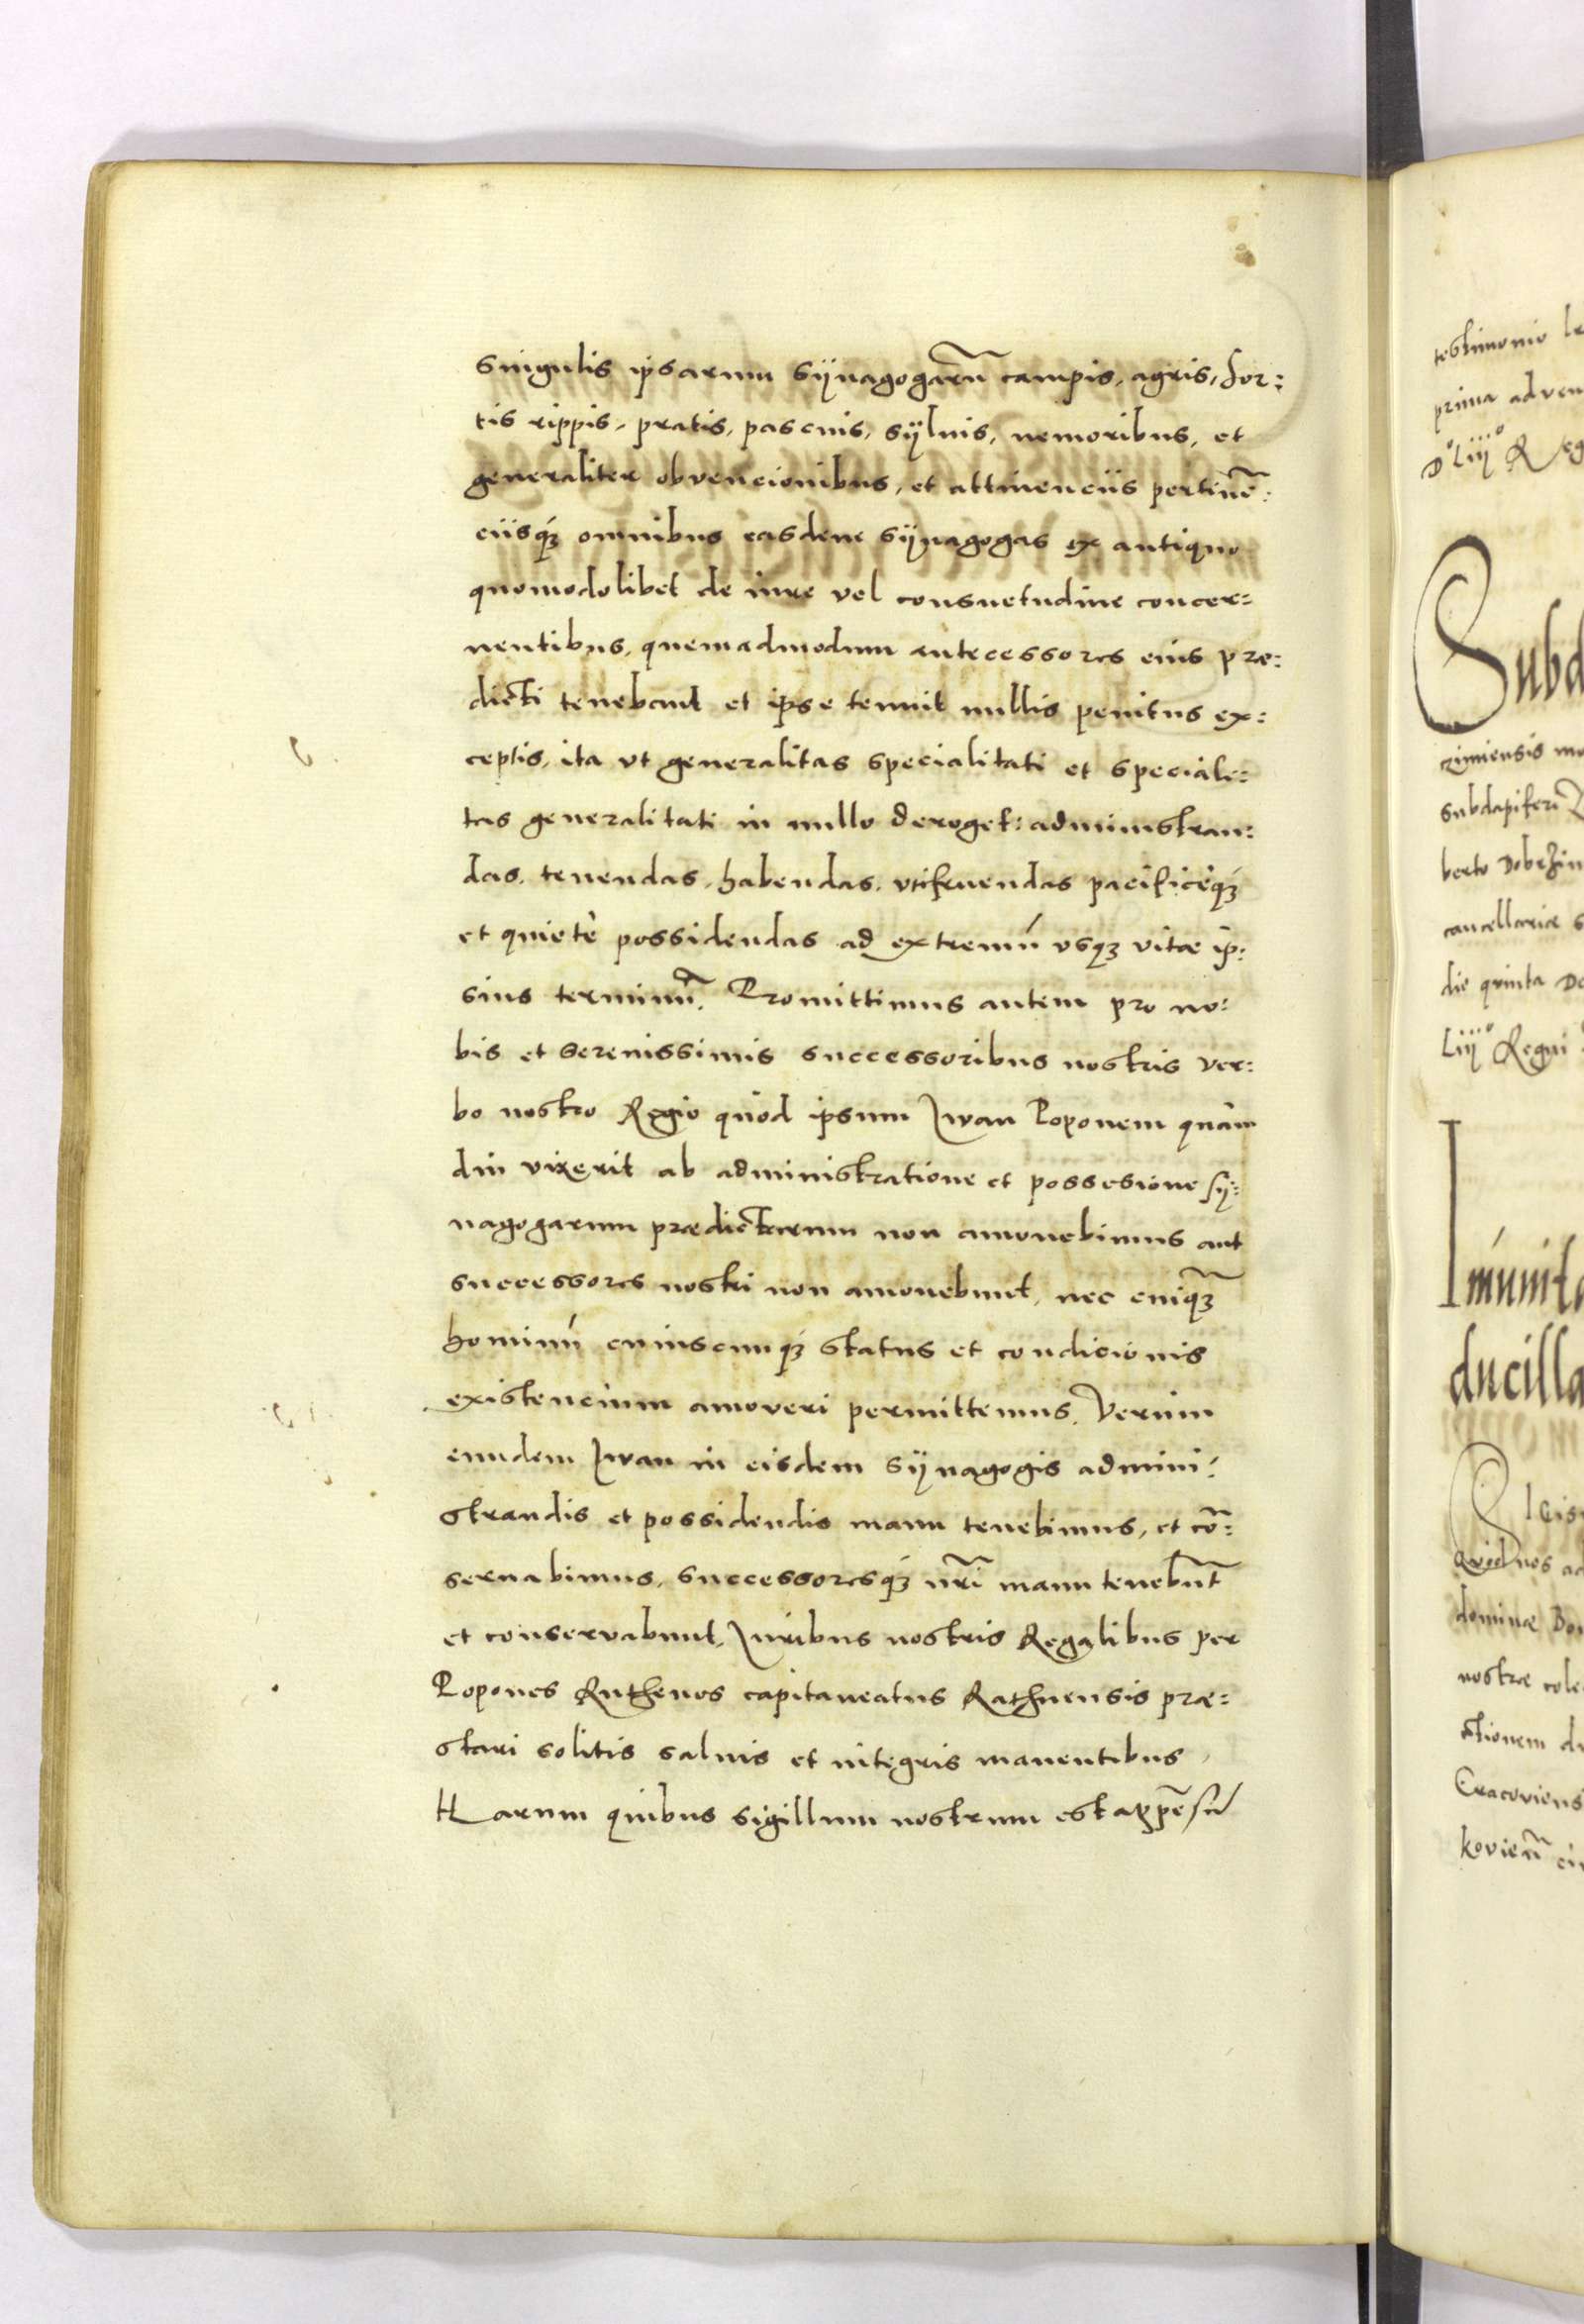 singulis ipsarum sÿnagogarũ campis, agris, hor:
tis rippis, pratis, pascuis, sÿluis, nemoribus, et
generaliter obvencionibus, et attinenciis pertinẽ:
ciisqꝫ omnibus easdem sÿnagogas ex antiquo
quomodolibet de iure vel consuetudine concer:
nentibus, quemadmodum antecessores eius præ:
dicti tenebant et ipse tenuit nullis penitus ex:
ceptis, ita vt generalitas specialitati et speciali:
tas generalitati in nullo deroget: administran:
das, tenendas, habendas, vtifruendas pacificèqꝫ
et quietè possidendas ad extremũ vsqꝫ vitæ ip:
sius terminũ. Promittimus autem pro no:
bis et Serenissimis successoribus nostris ver:
bo nostro Regio quòd ipsum Iwan Poponem quàm
diu vixerit ab administratione et possesione sÿ:
nagogarum prædictarum non amouebimus aut
successores nostri non amouebunt, nec cuiqꝫ
hominũ cuiuscunqꝫ status et condicionis
existencium amoveri permittemus. Verùm
eundem Iwan in eisdem sÿnagogis admini:
strandis et possidendis manu tenebimus, et cõ:
seruabimus, successoresqꝫ nrĩ manu tenebũt
et conservabunt, Iuribus nostris Regalibus per
Popones Ruthenos capitaneatus Rathnensis præ:
stari solitis saluis et integris manentibus,
Harum quibus sigillum nostrum est appẽsũ
testimonio
prima
Liijº
Subd
cziniensis
subdapiferi
berto Dobrzin
cancellariæ
die quinta
Liijº Regni
Imunita
ducilla
Quod nos
dominæ
nostræ
ctionem
Cracoviens